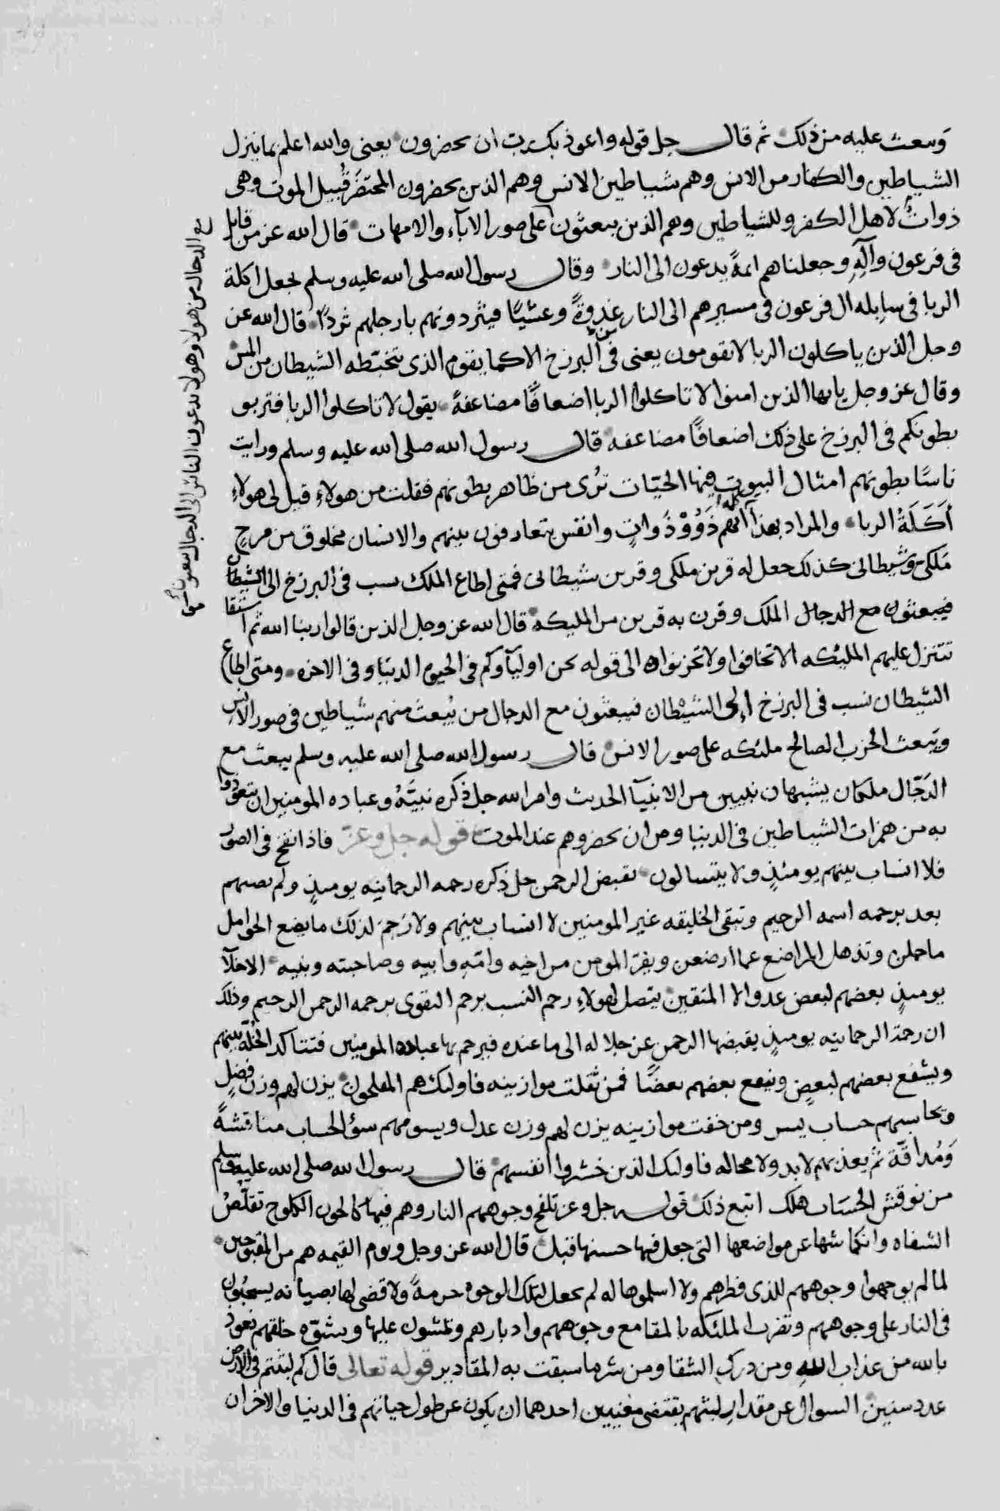 وبعث عليه من ذلك ثم قال جل قوله واعوذ بك رب ان يحضرون يعنى والله اعلم بما ينزل
الشياطين والكفار من الانس وهم شياطين الانس وهم الذين يحضرون المحتضر قبيل الموت وهى
ذوات لاهل الكفر وللشياطين وهم الذين يبعثون على صور الاباء والامهات قال الله عز من قايل
فى فرعون وآله وجعلناهم ايمة يدعون الى النار وقال رسول الله صلى الله عليه وسلم لجعل اكلة
الربا فى سابلة ال فرعون فى مسيرهم الى النار غدوة وعشيا فيثردونهم بارجلهم ثردا قال الله عز
وجل الذين ياكلون الربا لا يقومون يعنى فى البرزخ الا كما يقوم الذى يتخبطه الشيطان من المس
وقال عز وجل يايها الذين امنوا لا تاكلوا الربا اضعافا مضاعفة يقول لا تاكلوا الربا فتربو
بطونكم فى البرزخ على ذلك اضعافا مضاعفه قال رسول الله صلى الله عليه وسلم ورايت
ناسا بطونهم امثال البيوت فيها الحيات ترى من ظاهر بطونهم فقلت من هولاء قيل لى هولاء
اكلة الربا والمراد بهذا انهم ذوو ذوات وانفس يتعارفون بينهم والانسان مخلوق من مزج
ملكى وشيطانى كذلك جعل له قرين ملكى وقرين شيطانى فمتى اطاع الملك نسب فى البرزخ الى الشيطان
فيبعثون مع الدجال الملك وقرن به قرين من المليكه قال الله عز وجل الذين قالوا ربنا الله ثم استقاموا
تتنزل عليهم المليكه الا تخافوا ولا تحزنوا الى قوله نحن اولياوكم فى الحيوة الدنيا وفى الاخره ومتى اطاع
الشيطان نسب فى البرزخ الى الشيطان فيبعثون مع الدجال من يبعث منهم شياطين فى صور الانس
ويبعث الحزب الصالح مليكه على صور الانس قال رسول الله صلى الله عليه وسلم يبعث مع
الدجال ملكان يشبهان نبيين من الانبيآ الحديث وامر الله جل ذكره نبيه وعباده المومنين ان يتعوذوا
به من همزات الشياطين فى الدنيا ومن ان يحضروهم عند الموت قوله جل وعز فاذا نفخ فى الصور
فلا انساب بينهم يومئذ ولا يتسالون يقبض الرحمن جل ذكره رحمه الرحمانيه يوميذ ولم يصبهم
بعد برحمه اسمه الرحيم وتبقى الخليقه غير المومنين لا انساب بينهم ولا رحم لذلك ما يضع الحوامل
ما حملن وتذهل المراضع عما ارضعن ويفر المومن من اخيه وامه وابيه وصاحبته وبنيه الاخلآ
يوميذ بعضهم لبعض عدو الا المتقين يتصل لهولاء رحم النسب برحم التقوى برحمه الرحمن الرحيم وذلك
ان رحمة الرحمانيه يوميذ يقبضها الرحمن عز جلاله الى ما عنده فيرحم بها عباده المومنين فتتاكد الخلة بينهم
ويشفع بعضهم لبعض وينفع بعضهم بعضا فمن ثقلت موازينه فاوليك هم المفلحون يزن لهم وزن فضل
ويحاسبهم حساب يسر ومن خفت موازينه يزن لهم وزن عدل ويسومهم سؤ الحساب مناقشة
ومداقة ثم يعذبهم لا بد ولا محاله فاوليك الذين خسروا انفسهم قال رسول الله صلى الله عليه وسلم
من نوقش الحساب هلك اتبع ذلك قوله جل وعز تلفح وجوههم النار وهم فيها كالحون الكلوح تقلص
الشفاه وانكماشها عن مواضعها التى جعل فيها حسنها قبل قال الله عز وجل ويوم القيمه هم من المقبوحين
لما لم يوجهوا وجوههم للذى فطرهم ولا اسلموها له لم يجعل لتلك الوجوه حرمة ولا قضى لها بصيانه يسحبون
فى النار على وجوههم وتضرب المليكه بالمقامع وجوههم وادبارهم ويمشون عليها ويشوه خلقهم نعوذ
بالله من عذاب الله ومن درك الشقا ومن شر ما سبقت به المقادير قوله تعالى قال كم لبثتم فى الارض
عدد سنين السوال عن مقدار لبثهم يقتضى معنيين احدهما ان يكون عن طول حياتهم فى الدنيا والاخر ان
مع الدجال من هولا وهولا يدعون الناس الى الدجال